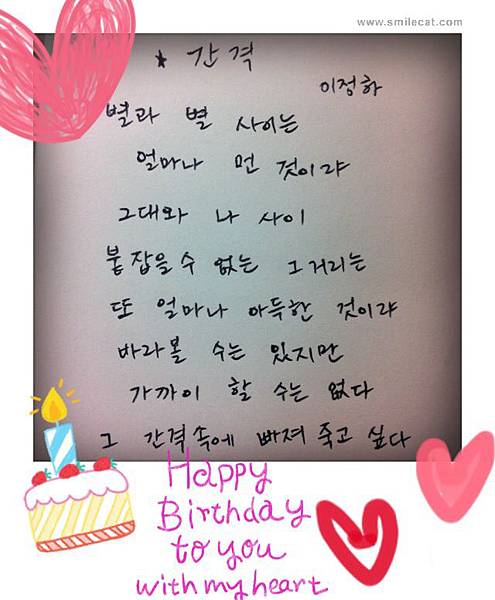 www.smilecat.com
* 간격
이정하
별과 별 사이는
얼마나 먼 것이랴
그대와 나 사이
붙잡을수 없는 그거리는
또 얼마나 아득한 것이랴
바라볼 수는 있지만
가까이 할 수는 없다
그 간격속에 빠져 죽고 싶다
Happy
Birthday
to you
with my heart